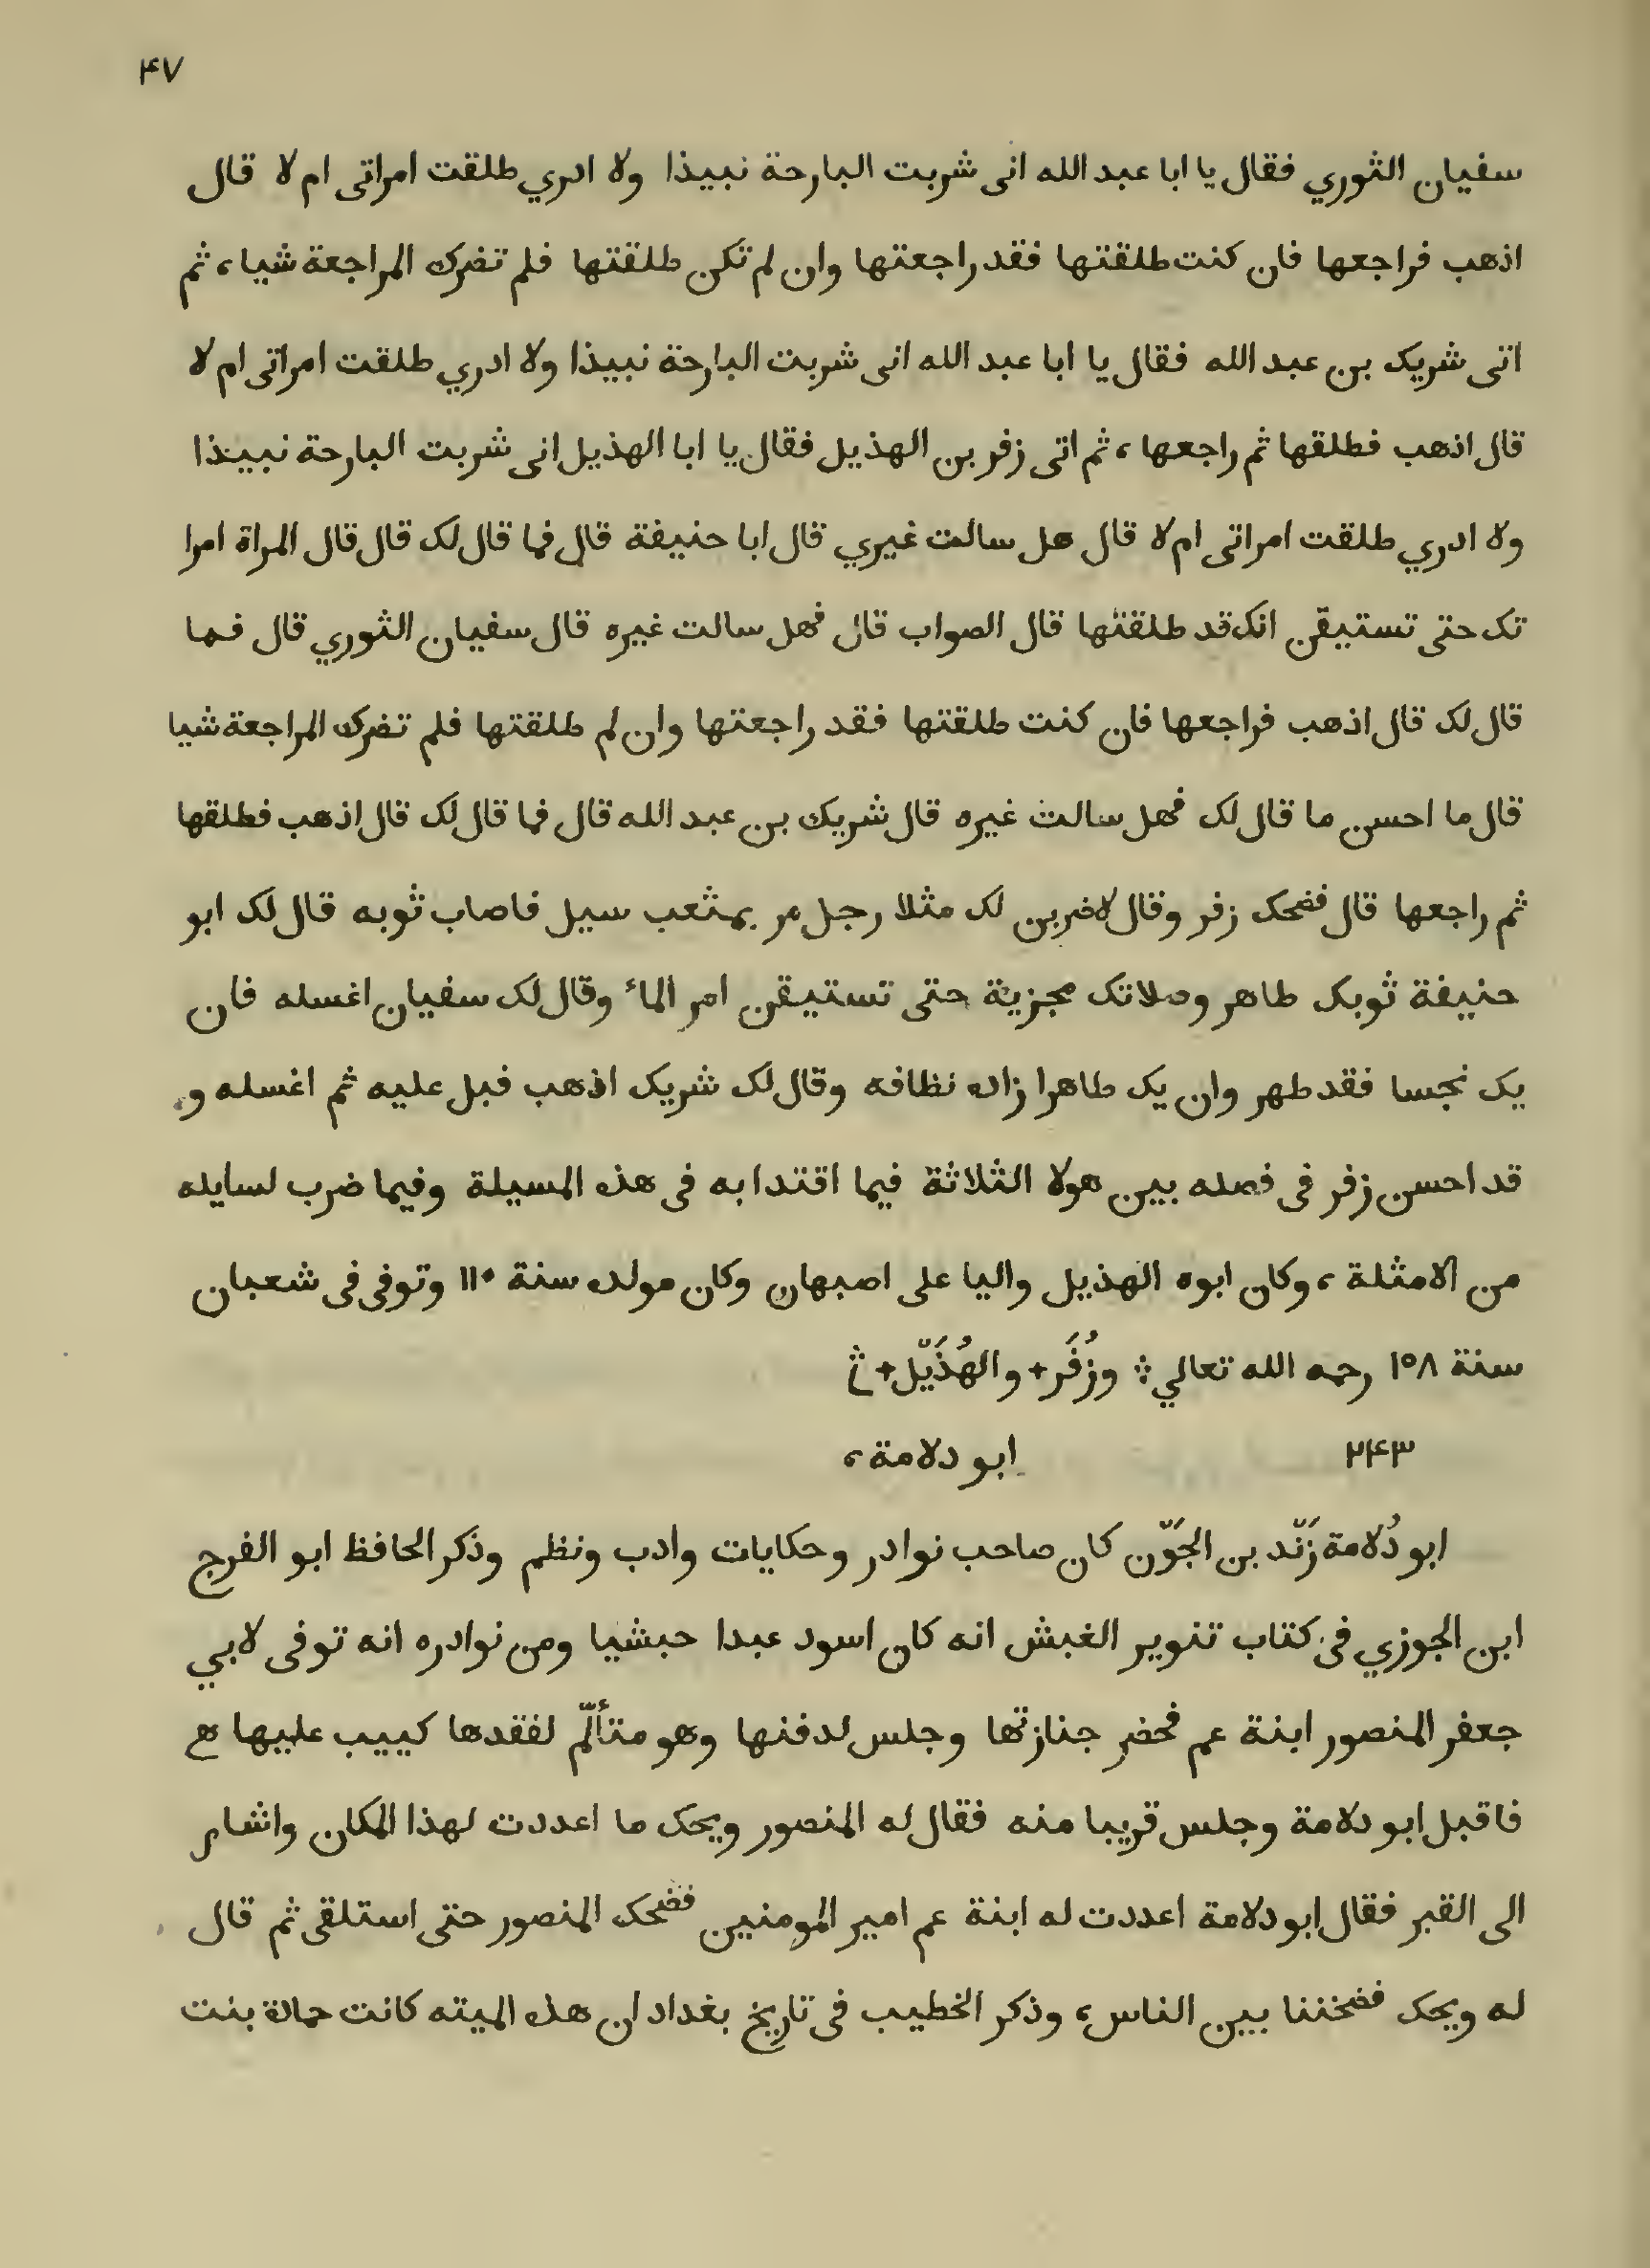 ۴۷
سفيان الثوري فقال يا ابا عبد الله انى شربت البارحة نبيذا ولا ادري طلقت امراتى ام لا قال
اذهب فراجعها فان كنت طلقتها فقد راجعتها وان لم تكن طلقتها فلم تضرك المراجعة شيا، ثم
اتى شريك بن عبد الله فقال يا ابا عبد الله انى شربت البارحة نبيذا ولا ادري طلقت امراتى ام لا
قال اذهب فطلقها ثم راجعها، ثم اتى زفر بن الهذيل فقال يا ابا الهذيل انى شربت البارحة نبيذا
ولا ادري طلقت امراتى ام لا قال هل سالت غيري قال ابا حنيفة قال فما قال لك قال قال المراة امرا
تك حتى تستيقن انك قد طلقتها قال الصواب قال فهل سالت غيره قال سفيان الثوري قال فما
قال لك قال اذهب فراجعها فان كنت طلقتها فقد راجعتها وان لم طلقتها فلم تضرك المراجعة شيا
قال ما احسن ما قال لك فهل سالت غيره قال شريك بن عبد الله قال فما قال لك قال اذهب فطلقها
ثم راجعها قال فضحك زفر وقال لاضربن لك مثلا رجل مر بمثعب سيل فاصاب ثوبه قال لك ابو
حنيفة ثوبك طاهر وصلاتك مجزية حتى تستيقن امر الماء وقال لك سفيان اغسله فان
يك نجسا فقد طهر وان يك طاهرا زاده نظافه وقال لك شريك اذهب فبل عليه ثم اغسله و
قد احسن زفر فى فصله بين هولا الثلاثة فيما اقتدا به فى هذه المسيلة وفيما ضرب لسايله
من الامثلة، وكان ابوه الهذيل واليا على اصبهان وكان مولده سنة ١١٠ وتوفى فى شعبان
سنة ١٥٨ رحمه الله تعالي ÷ وزُفَر + والهُذَيْل +
۲۴۳ ابو دلامة،
ابو دُلامة زَنْد بن الجَوْن كان صاحب نوادر وحكايات وادب ونظم وذكر الحافظ ابو الفرج
ابن الجوزي فى كتاب تنوير الغبش انه كان اسود عبدا حبشيا ومن نوادره انه توفى لابي
جعفر المنصور ابنة عم فحضر جنازتها وجلس لدفنها وهو متألّم لفقدها كييب عليها
فاقبل ابو دلامة وجلس قريبا منه فقال له المنصور ويحك ما اعددت لهذا المكان واشار
الى القبر فقال ابو دلامة اعددت له ابنة عم امير المومنين فضحك المنصور حتى استلقى ثم قال
له ويحك فضختنا بين الناس، وذكر الخطيب فى تاريخ بغداد ان هذه الميته كانت حمادة بنت